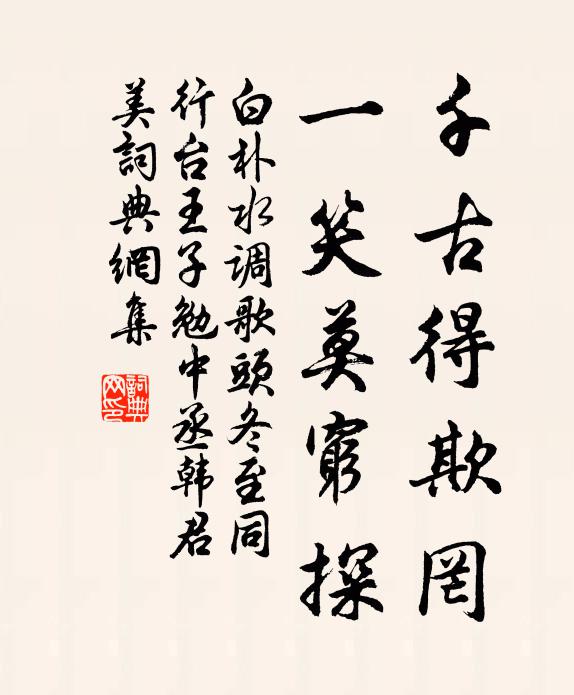 千古得欺罔
一笑莫窮探
白朴水调歌頭冬至同
行台王子勉中丞韩君
美詞典網集
詞典
网印